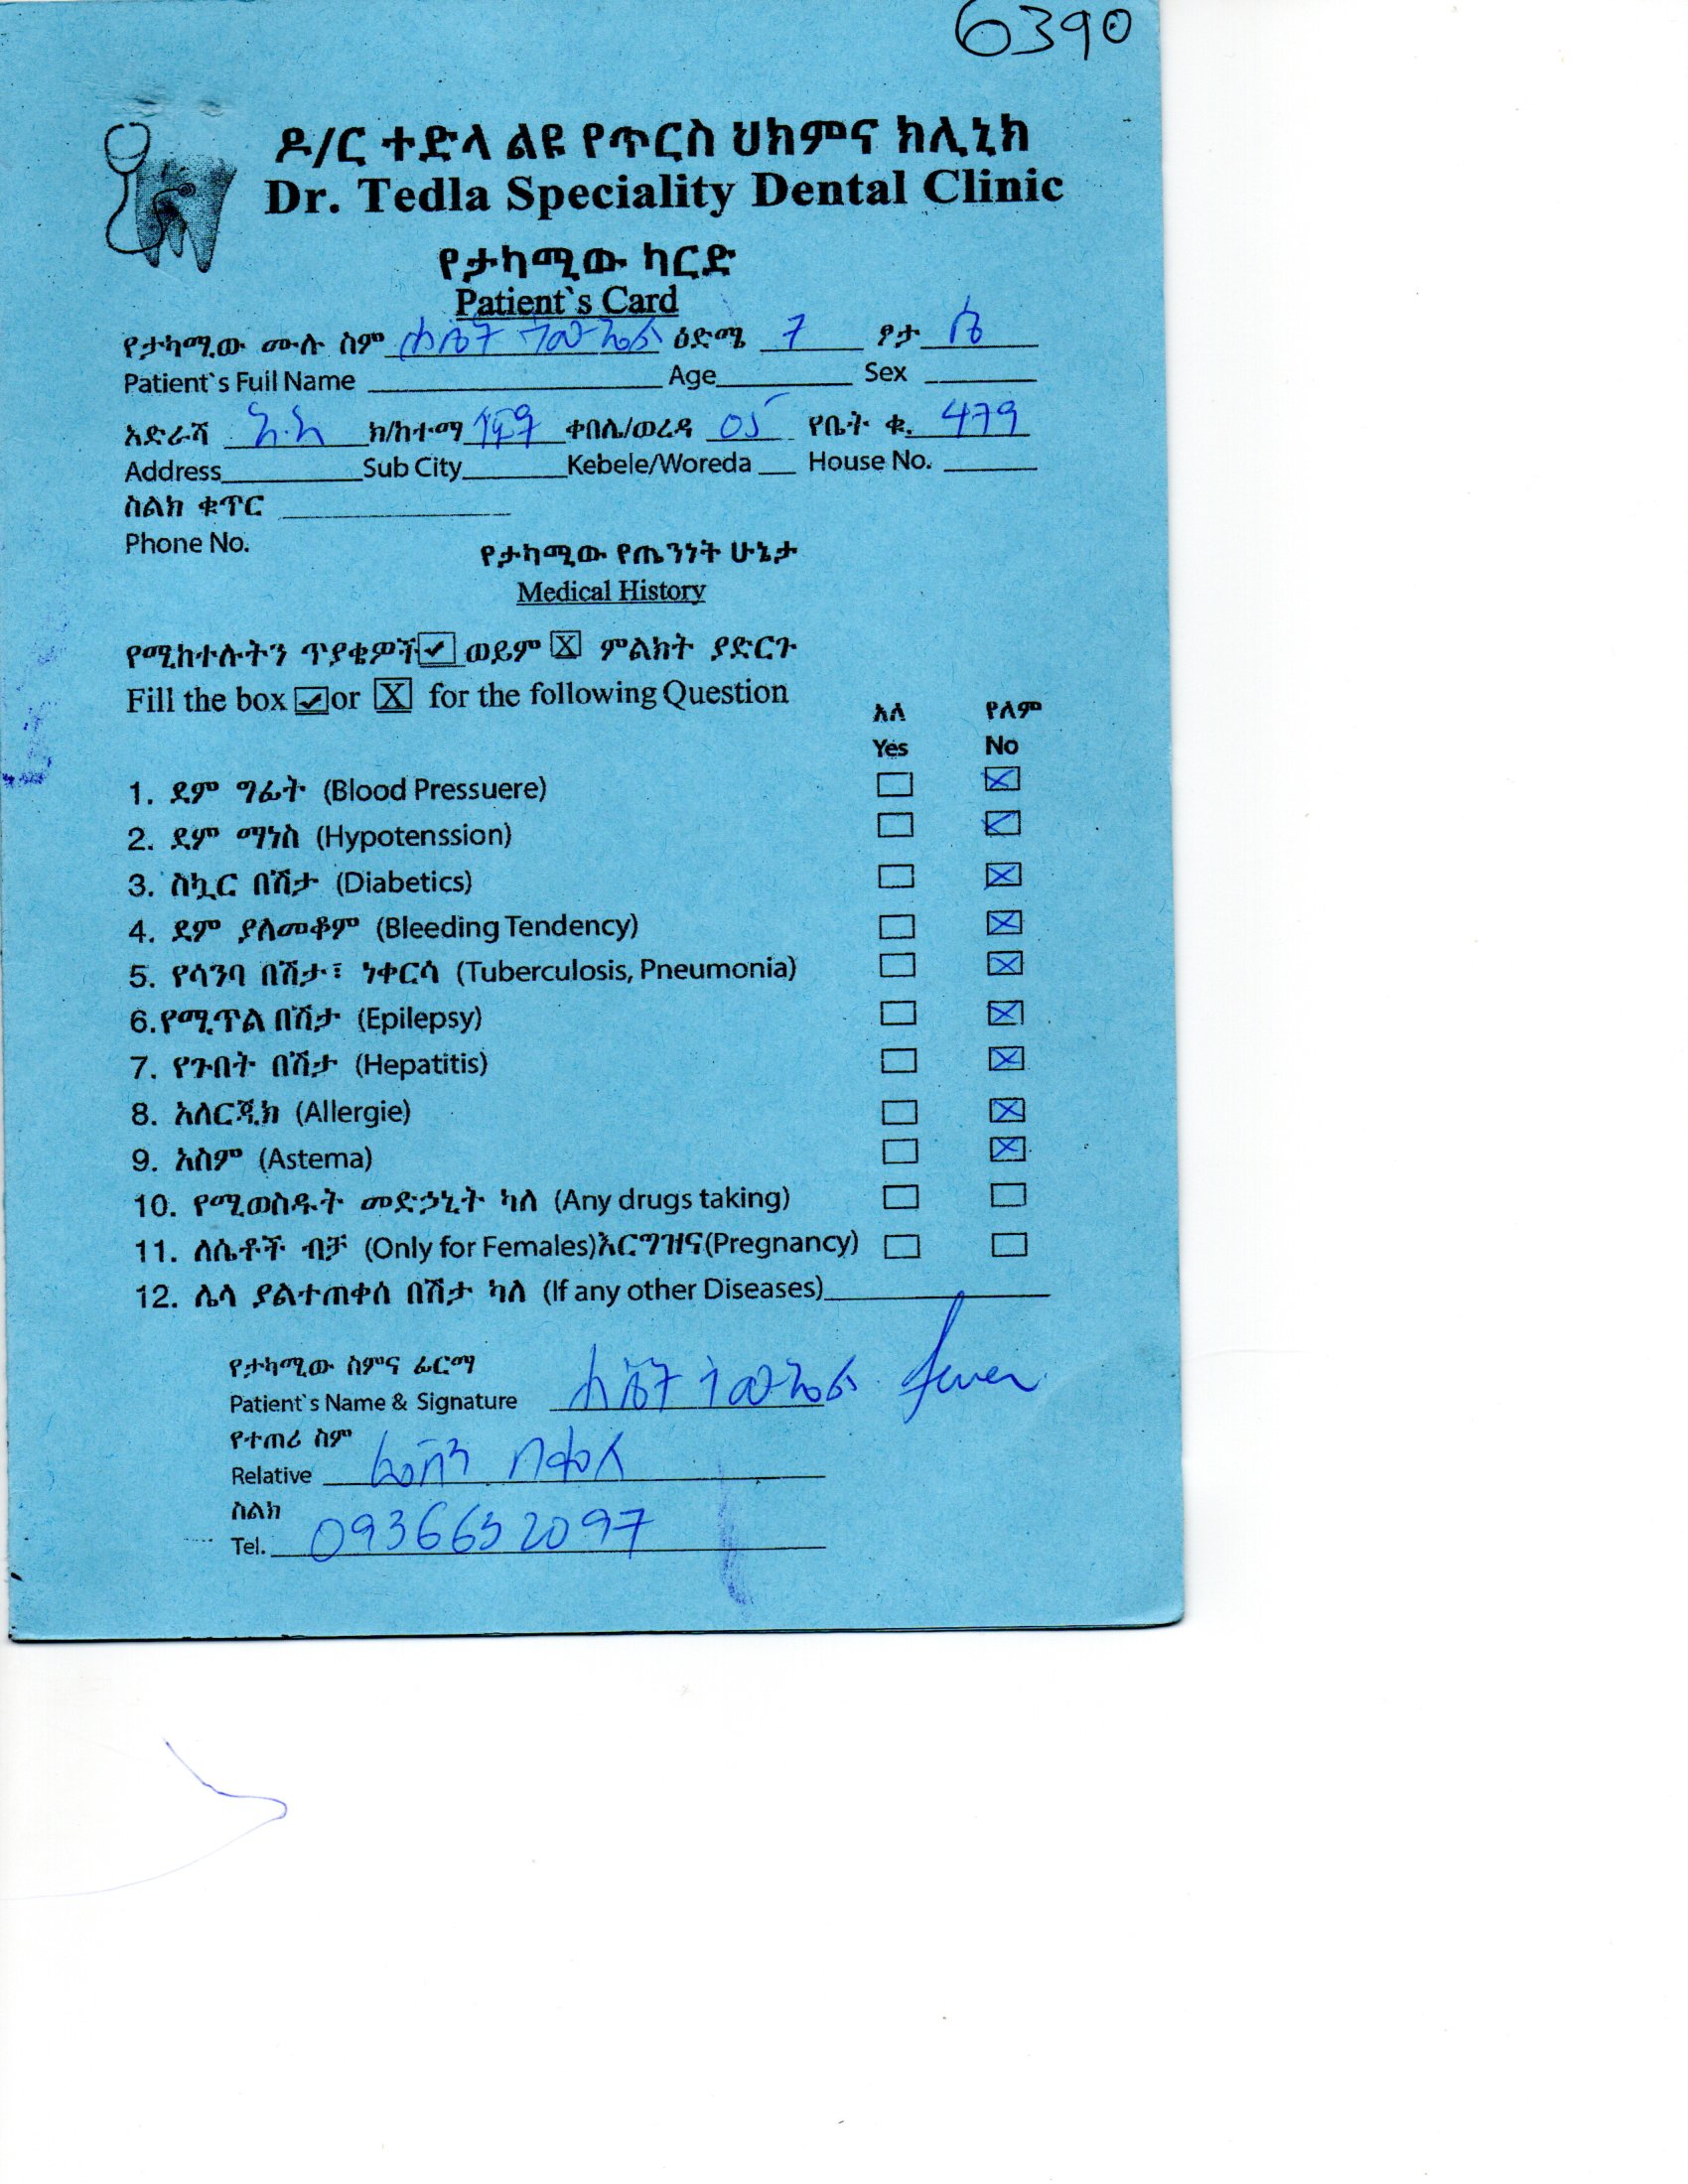 6390
ዶ/ር ተድላ ልዩ የጥርስ ህክምና ክሊኒክ
Dr. Tedla Speciality Dental Clinic
የታካሚው ካርድ
Patient`s Card
የታካሚው ሙሉ ስም ዕድሜ 7 ፆታ ሴ
Patient`s Full Name Age Sex
አድራሻ አ.አ ክ/ከተማ ቀበሌ/ወረዳ 05 የቤት ቁ. 479
Address Sub City Kebele/Woreda House No.
ስልክ ቁጥር
Phone No.
የታካሚው የጤንነት ሁኔታ
Medical History
የሚከተሉትን ጥያቄዎች ወይም X ምልክት ያድርጉ
Fill the box or X for the following Question
አለ የለም
Yes No
1. ደም ግፊት (Blood Pressuere)
2. ደም ማነስ (Hypotenssion)
3. ስኳር በሽታ (Diabetics)
4. ደም ያለመቆም (Bleeding Tendency)
5. የሳንባ በሽታ፣ ነቀርሳ (Tuberculosis, Pneumonia)
6.የሚጥል በሽታ (Epilepsy)
7. የጉበት በሽታ (Hepatitis)
8. አለርጂክ (Allergie)
9. አስም (Astema)
10. የሚወስዱት መድኃኒት ካለ (Any drugs taking)
11. ለሴቶች ብቻ (Only for Females)እርግዝና(Pregnancy)
12. ሌላ ያልተጠቀሰ በሽታ ካለ (If any other Diseases)
የታካሚው ስምና ፊርማ
Patient`s Name & Signature
የተጠሪ ስም
Relative
ስልክ
Tel. 0936632097